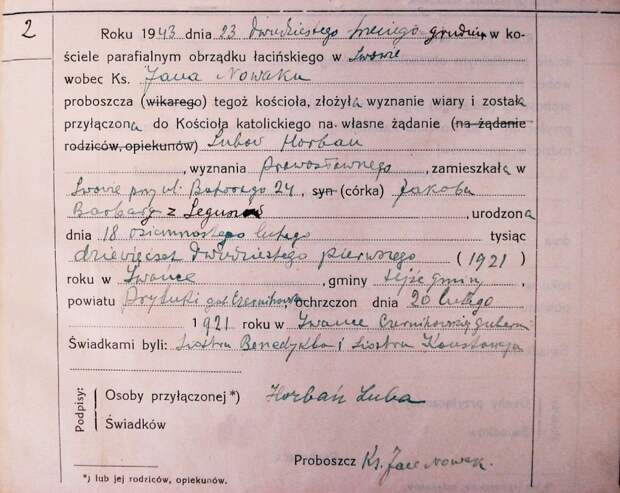 2
Roku 1943 dnia 23 dwudziestego trzeciego grudnia w ko-
ściele parafialnym obrządku łacińskiego w Lwowie
wobec Ks. Jana Nowaka
proboszcza (wikarego) tegoż kościoła, złożyła wyznanie wiary i została
przyłączona do Kościoła katolickiego na własne żądanie (na żądanie
rodziców, opiekunów) Lubov Horbań
, wyznania prawosławnego, zamieszkała w
Lwowie przy ul. Batorego 24, syn (córka) Jakoba
Barbary z , urodzona
dnia 18 osiemnastego lutego tysiąc
dziewięćset dwudziestego pierwszego (1921)
roku w Iwańce, gminy tejże gminy,
powiatu Pryłuki gub. Czernihowska, ochrzczon dnia 20 lutego
1921 roku w Iwańce Czernihowskiej guberni
Świadkami byli: Siostra Benedykta i Siostra Konstancja
Podpisy:
Osoby przyłączonej*) Horbań Luba
Świadków
Proboszcz Ks. Jan Nowak.
*) lub jej rodziców, opiekunów.